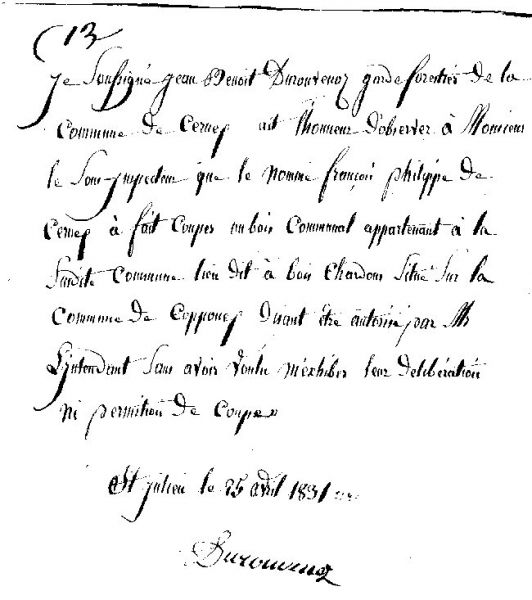 13
Je Soussigné jean Benoit Durouvenoz garde forestier de la
Commune de Cernex ait l'honneur d'observer à Monsieur
le Sous-jnspecteur que le nommé françois philippe de
Cernex à fait Couper un bois Communal appartenant à la
Susdite Commune lieu dit à bois Chardons Situé Sur la
Commune de Copponex disant être autorisé par Mr
L'jntendant Sans avoir voulu m'exhiber leur delibération
ni permition de Couper
St julien le 25 avril 1831
Durouvenoz